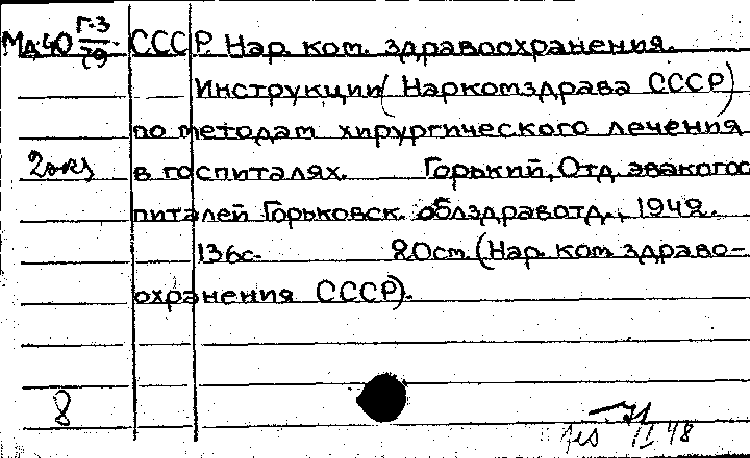 Мд40 Г-3/79 СССР. Нар. ком. здравоохранения.
Инструкции (Наркомздрава СССР)
по методам хирургического лечения
2экз в госпиталях. Горький, Отд. эвакогос
питалей Горьковск. облздравотд., 1942.
136с. 20см. (Нар. ком. здраво-
охранения СССР).
8
48